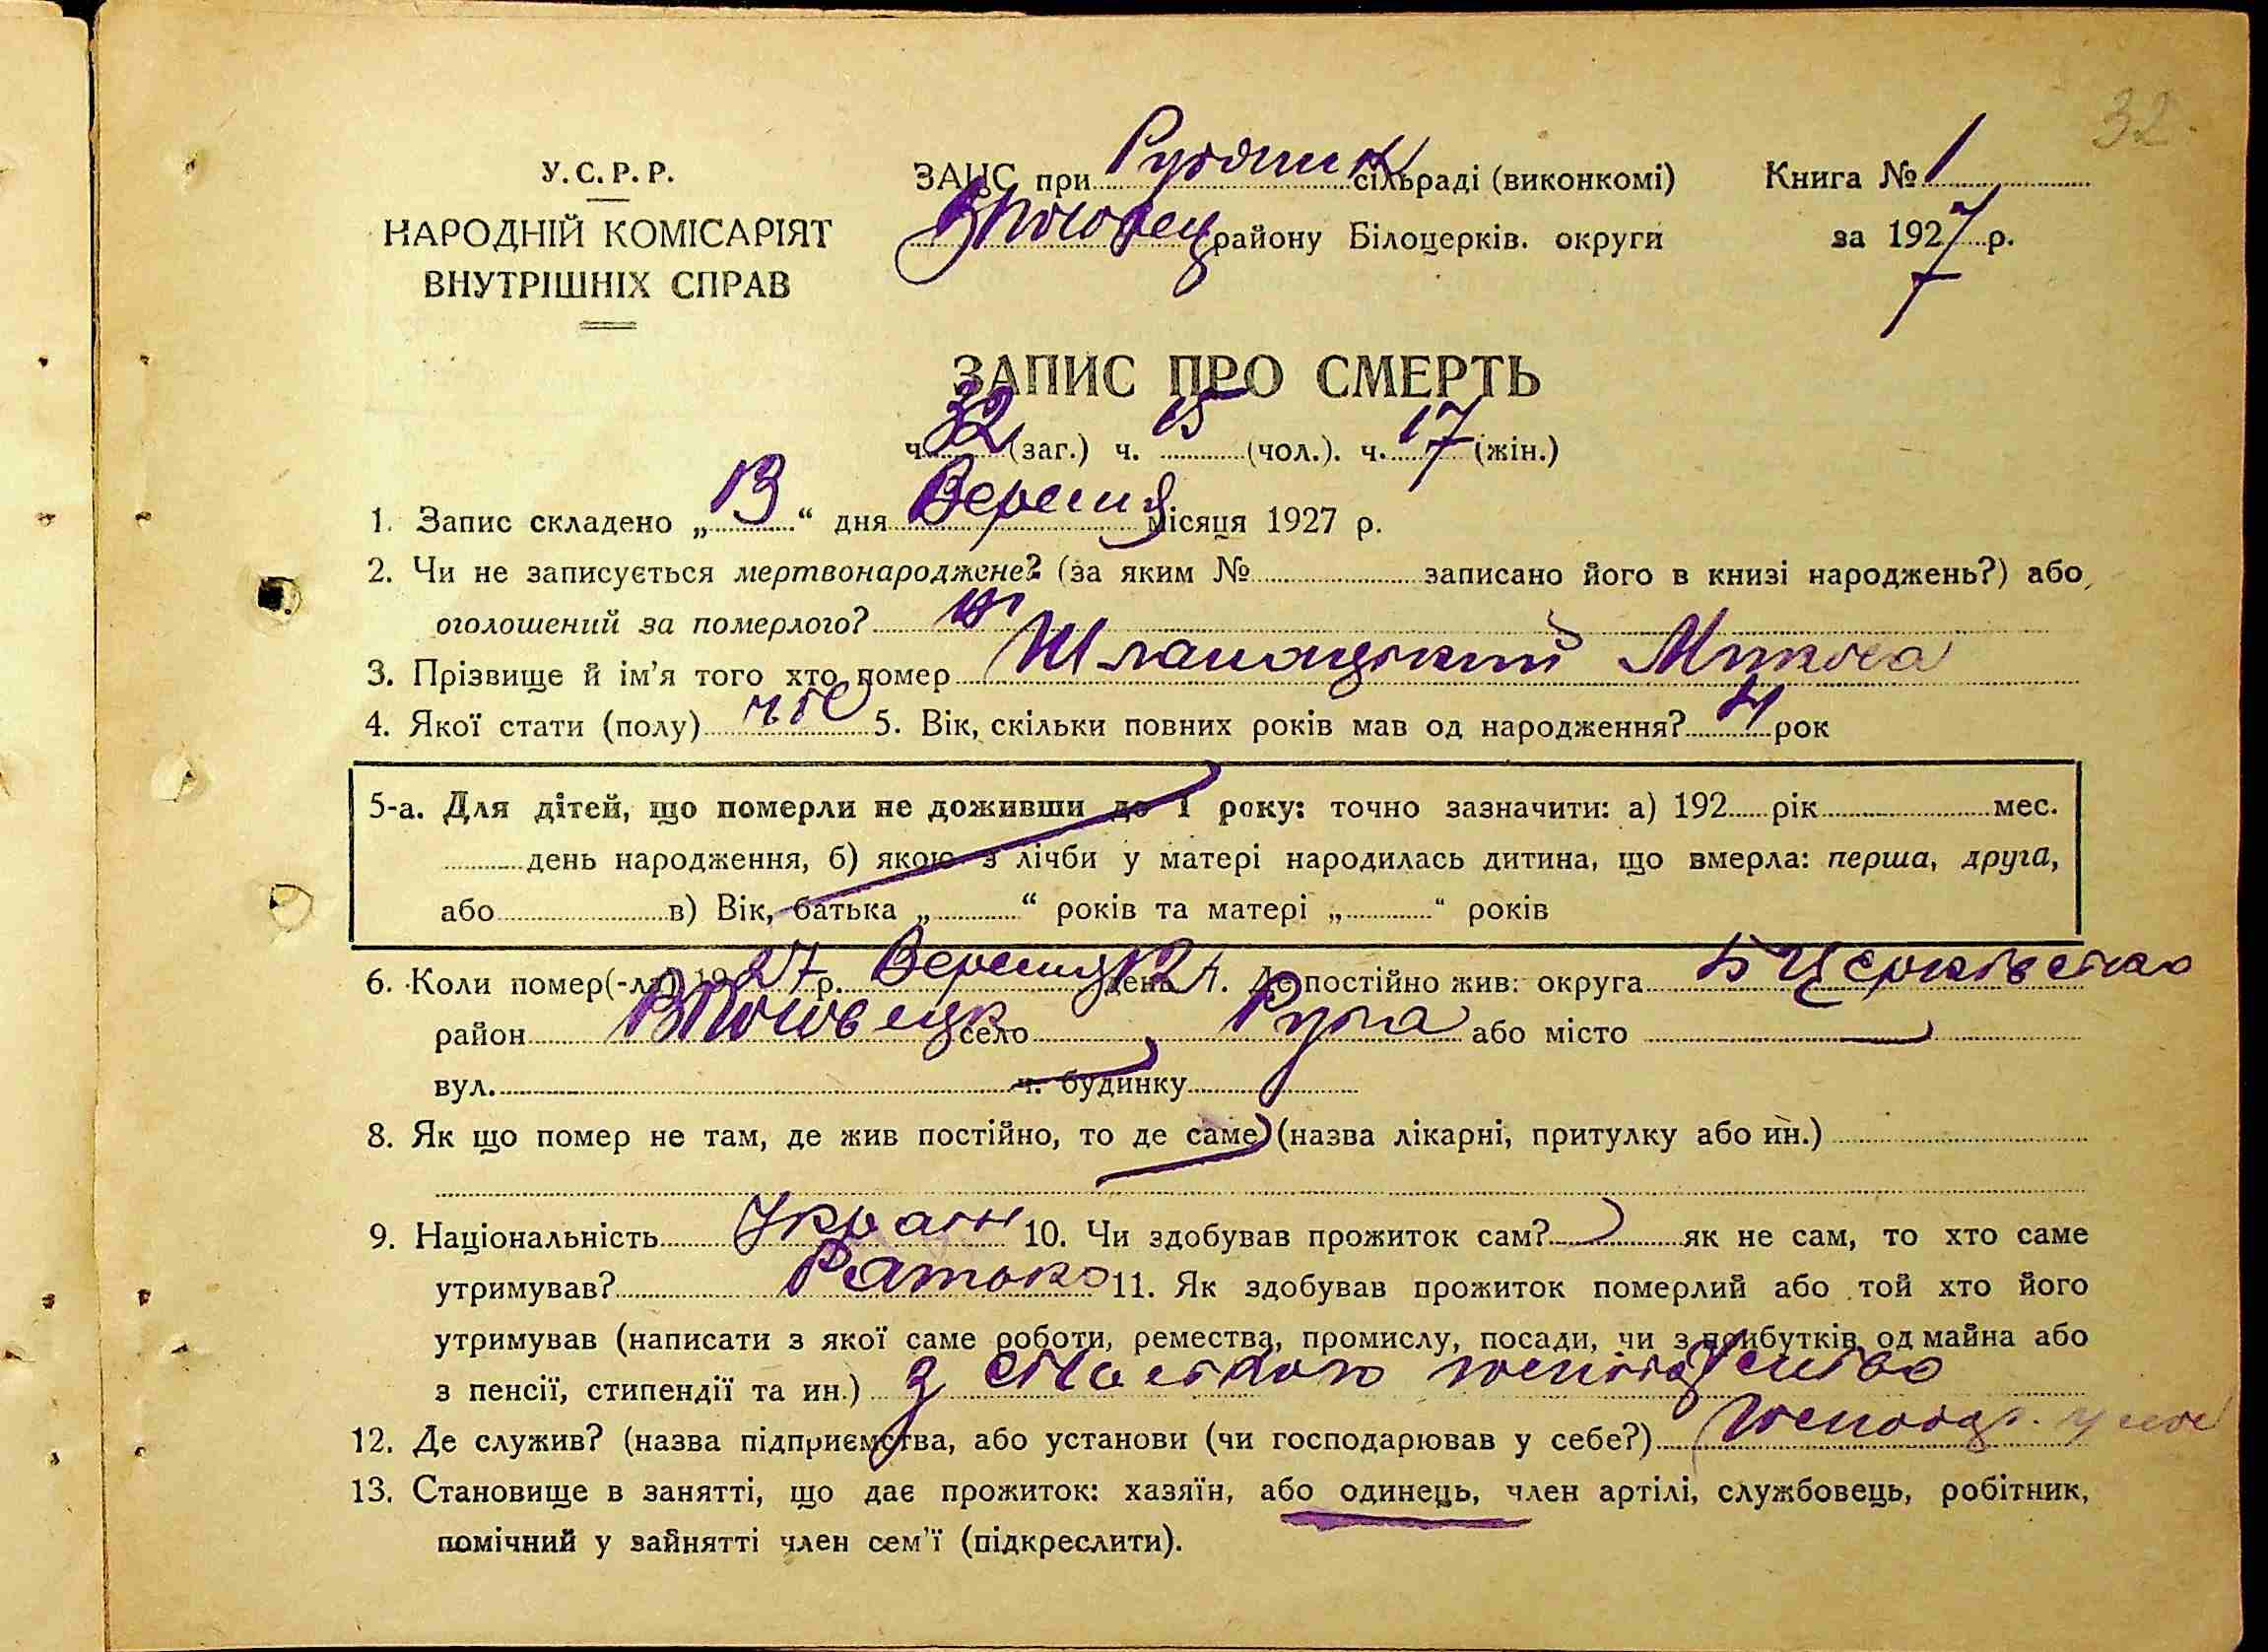 32
У.С.Р.Р.
НАРОДНІЙ КОМІСАРІЯТ
ВНУТРІШНІХ СПРАВ
ЗАЦС при сільраді (виконкомі)
району Білоцерків. округи
Книга № 1
за 1927 р.
ЗАПИС ПРО СМЕРТЬ
ч. 32 (заг.) ч. 15 (чол.). ч. 17 (жін.)
1. Запис складено „13“ дня Вересня місяця 1927 р.
2. Чи не записується мертвонароджене? (за яким № записано його в книзі народжень?) або
оголошений за померлого? ні
3. Прізвище й ім'я того хто помер Микола
4. Якої стати (полу) чол 5. Вік, скільки повних років мав од народження? 4 рок
5-а. Для дітей, що померли не доживши до 1 року: точно зазначити: а) 192 рік мес.
день народження, б) якою з лічби у матері народилась дитина, що вмерла: перша, друга,
або в) Вік, батька „ “ років та матері „ “ років
6. Коли помер(-ла) 1927 р. Вересня 12 день 7. Де постійно жив: округа Б Церківська
район село Руда або місто
вул. ч. будинку
8. Як що помер не там, де жив постійно, то де саме (назва лікарні, притулку або ин.)
9. Національність Україн 10. Чи здобував прожиток сам? як не сам, то хто саме
утримував? Батько 11. Як здобував прожиток померлий або той хто його
утримував (написати з якої саме роботи, ремества, промислу, посади, чи з прибутків од майна або
з пенсії, стипендії та ин.) з
12. Де служив? (назва підприємства, або установи (чи господарював у себе?) господар. у себе
13. Становище в занятті, що дає прожиток: хазяїн, або одинець, член артілі, службовець, робітник,
помічний у зайнятті член сем'ї (підкреслити).